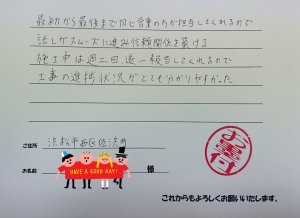 最初から最後まで同じ営業の方が担当してくれるので
話しがスムーズに進み信頼関係を築ける
施工中は週二回、逐一報告してくれるので
工事の進捗状況がとても分かりやすかった
ご住所
浜松市西区佐浜町
HAVE A GOOD DAY!
お名前
様
これからもよろしくお願いいたします。